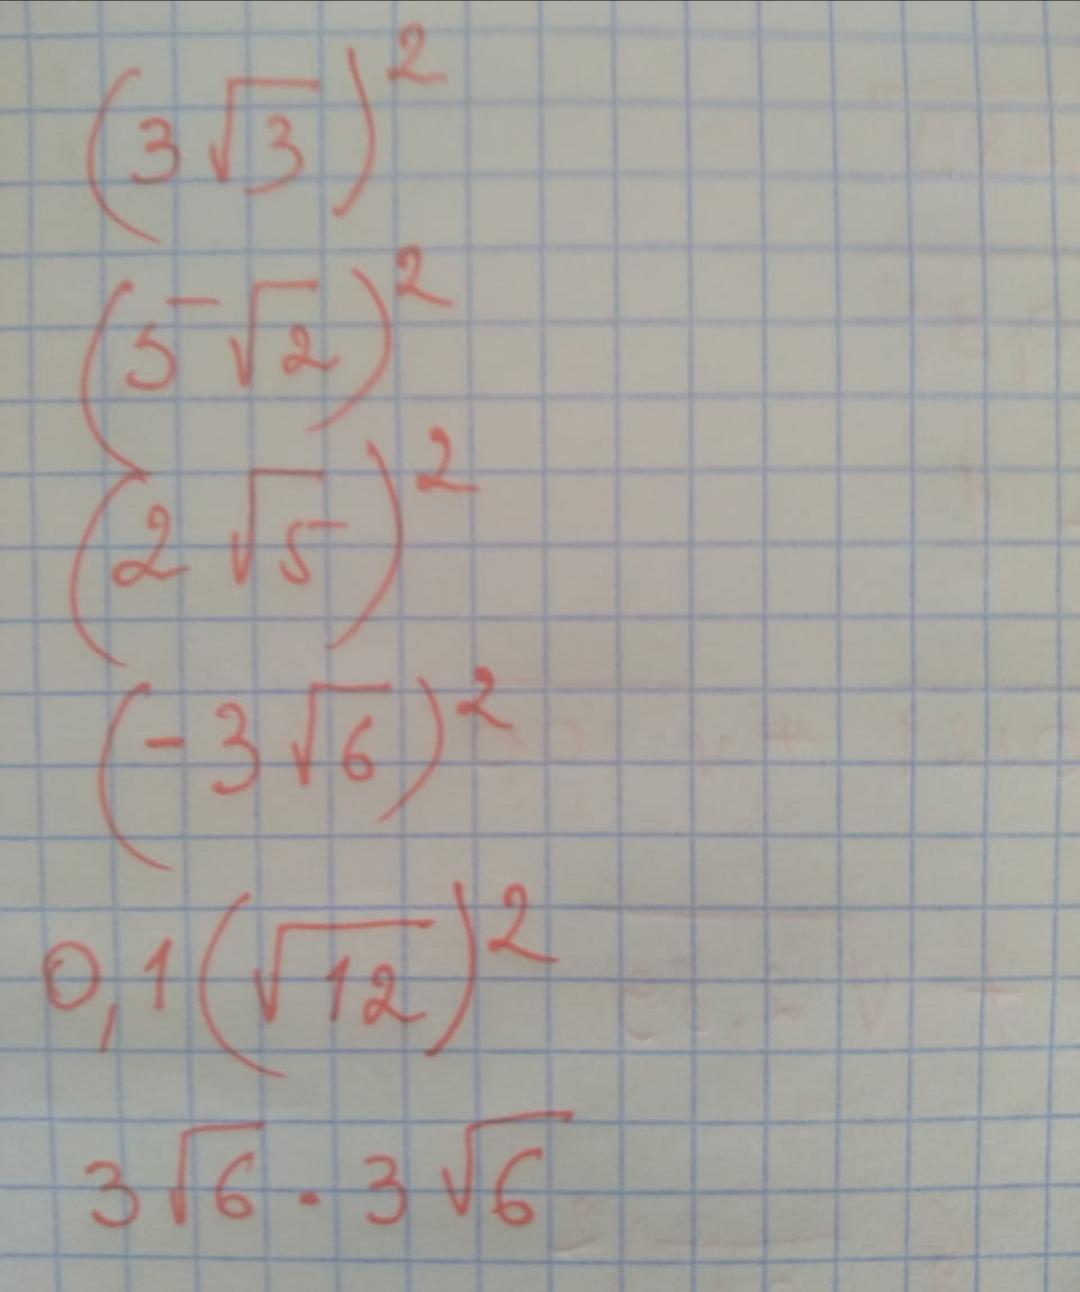 (3√3)²
(5√2)²
(2√5)²
(-3√6)²
0,1(√12)²
3√6 · 3√6